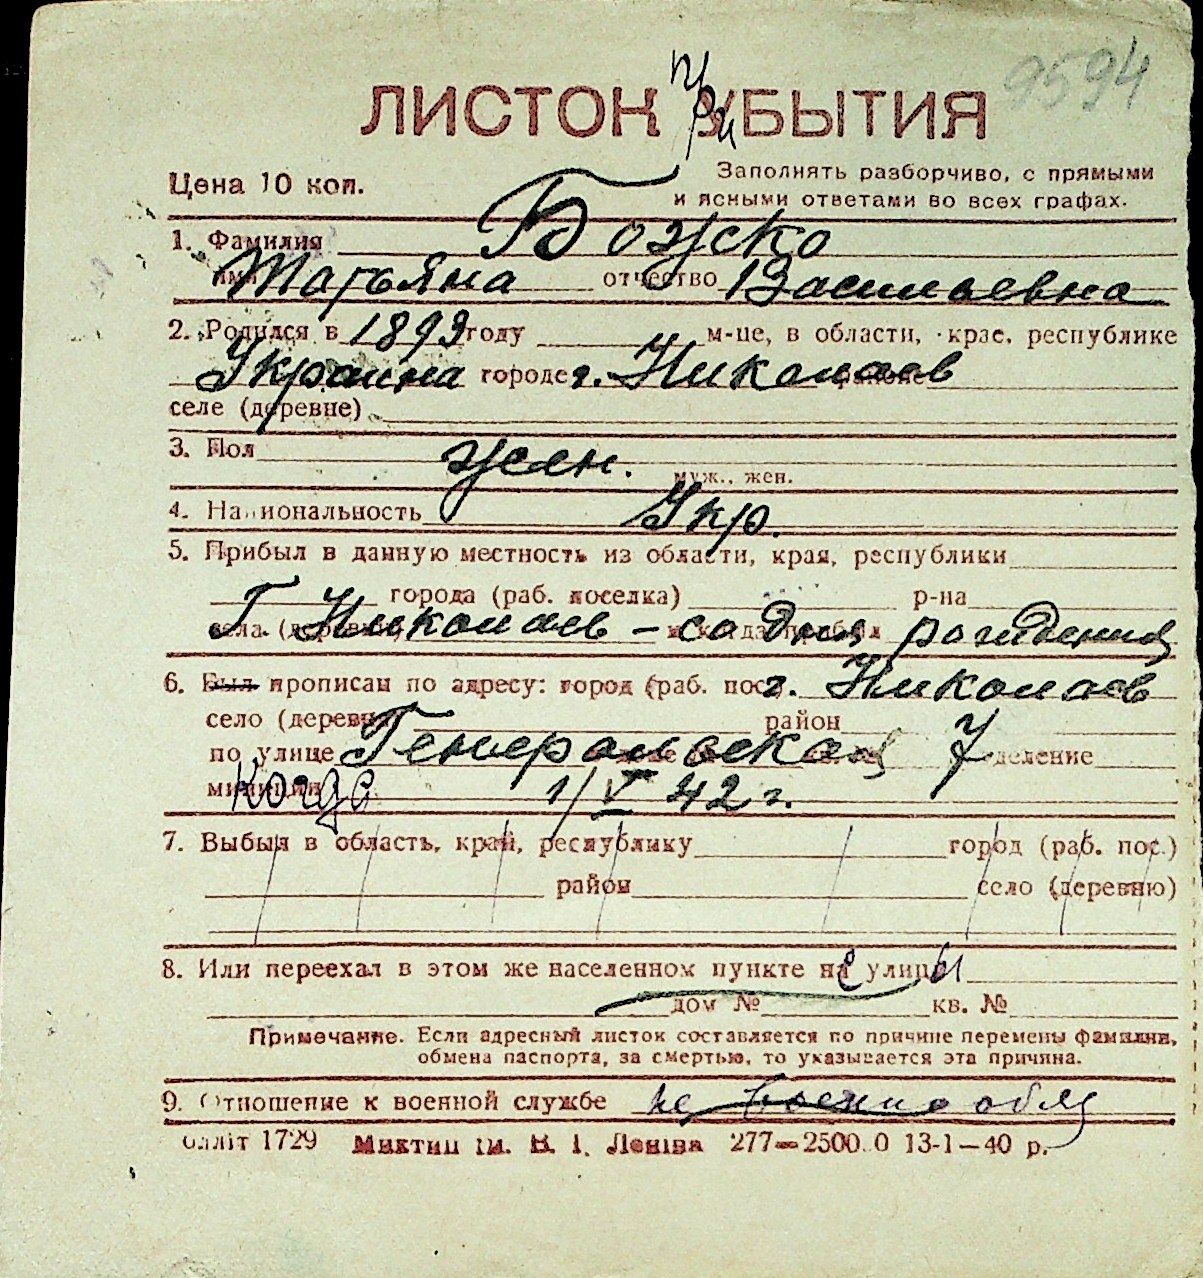 9594
ЛИСТОК ПриБЫТИЯ
Цена 10 коп.
Заполнять разборчиво, с прямыми
и ясными ответами во всех графах.
1. Фамилия Божко
имя Татьяна отчество Васильевна
2. Родился в 1899 году м-це, в области, крае, республике
Украина городе г. Николаев районе
селе (деревне)
3. Пол жен.
муж., жен.
4. Национальность Укр.
5. Прибыл в данную местность из области, края, республики
города (раб. поселка) р-на
села (деревни) Г. Николаев – со дня рождения
6. Был прописан по адресу: город (раб. пос. г. Николаев
село (деревня) район
по улице Генеральская 7 деление
милиции Когда 1/V 42 г.
7. Выбыл в область, край, республику город (раб. пос.)
район село (деревню)
8. Или переехал в этом же населенном пункте с улицы
дом № кв. №
Примечание. Если адресный листок составляется по причине перемены фамилии,
обмена паспорта, за смертью, то указывается эта причина.
9. Отношение к военной службе не военнообяз
Облліт 1729 Миктип ім. В. І. Леніна 277—2500.0 13-1—40 р.